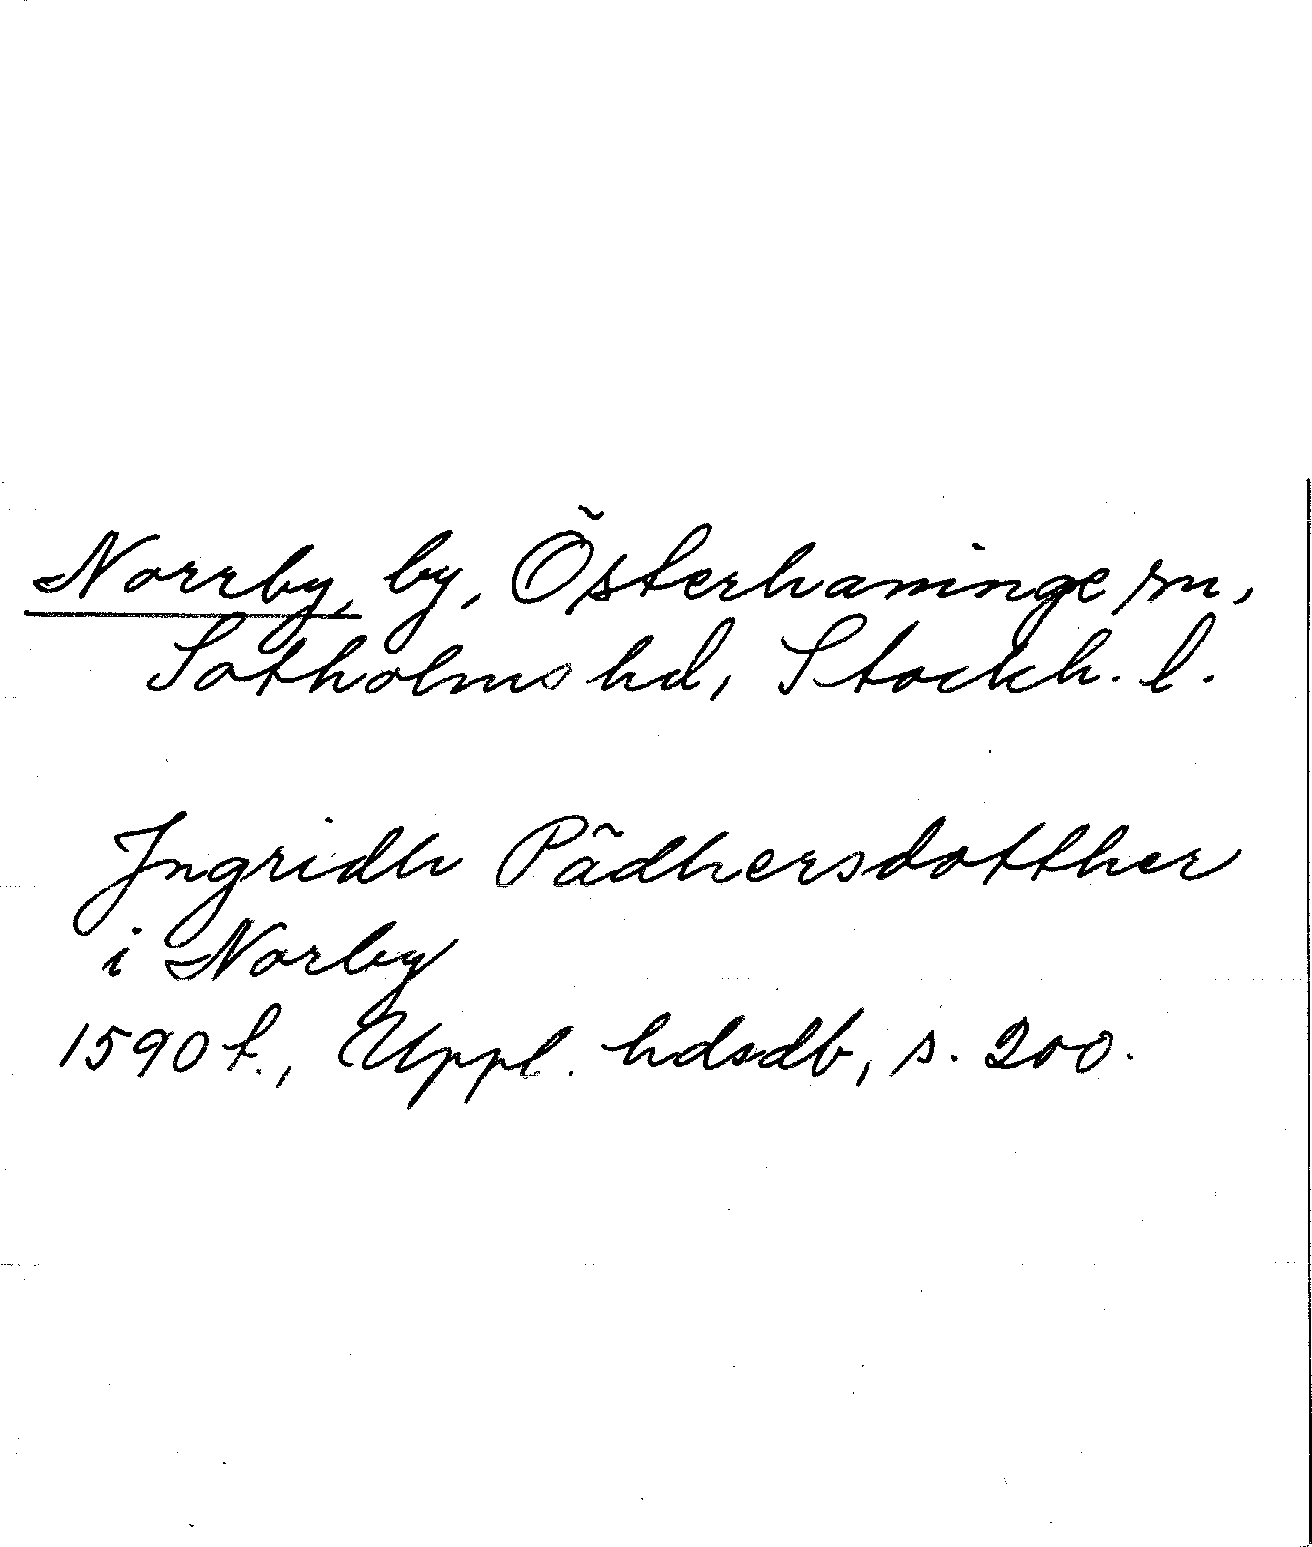 Norrby, by, Österhaninge sn,
Sotholms hd, Stockh. l.
Ingridh Pädhersdotther
i Norby
1590 t., Uppl. hdsdb, s. 200.